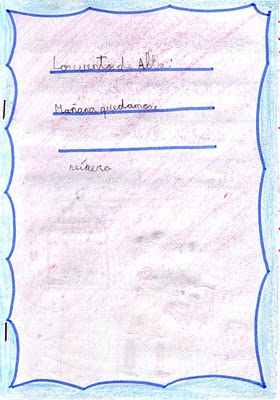 Los cuento de Alba:
Mañana quedamos,
número